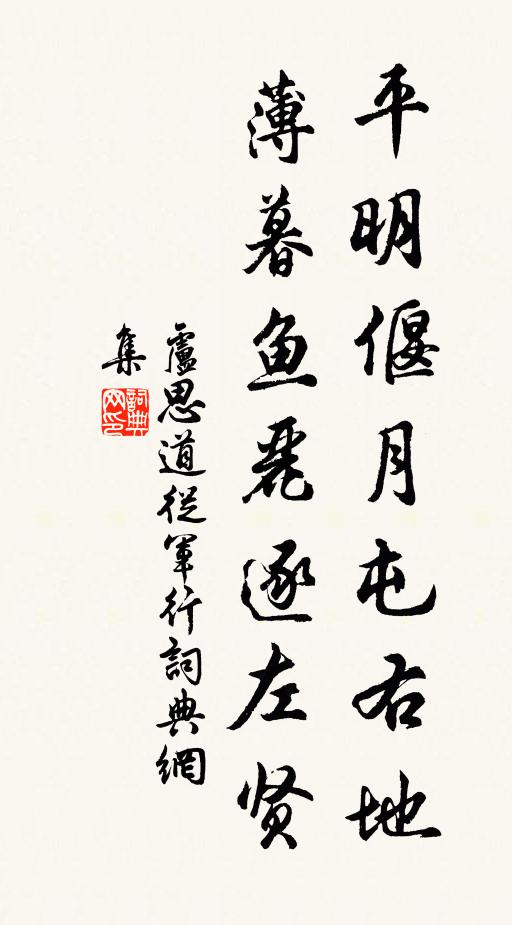 平明偃月屯右地
薄暮鱼麗逐左贤
盧思道從軍行詞典網
集
詞典
网印